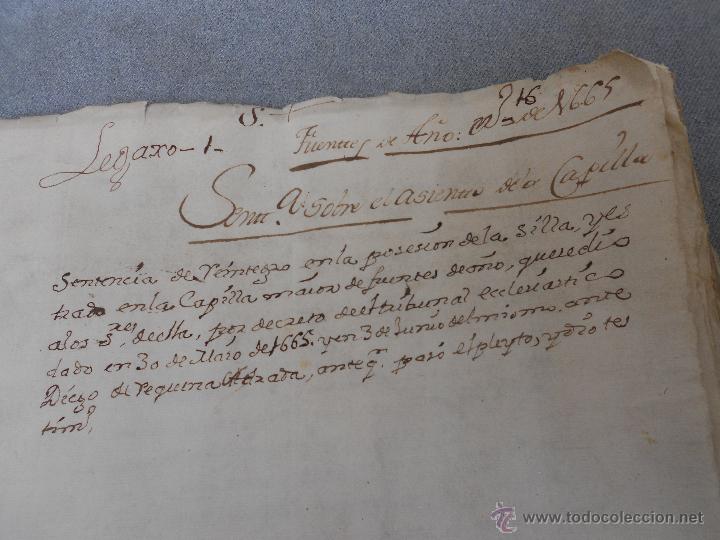 S.
Legaxo - 1 -
Fuentes de Año: N. 16 de 1665
Sent.a sobre el asiento de la Capilla
Sentencia de Reintegro en la posesion de la silla, y es
trado en la Capilla maior de fuentes de año, que se dio
a los S.res de ella, por decreto del tribunal ecclesiastico
dado en 30 de Maio de 1665. y en 3 de Junio del mismo. ante
Diego de Requena Estrada, ante q.n pasó el pleyto, y dio tes
tim.o
www.todocoleccion.net